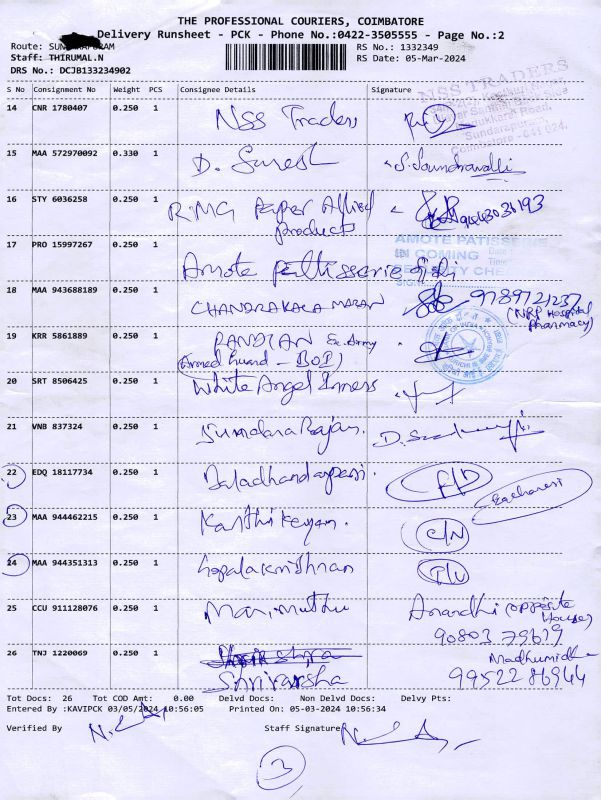 THE PROFESSIONAL COURIERS, COIMBATORE
Delivery Runsheet - PCK - Phone No.:0422-3505555 - Page No.:2
Route:
RS No.: 1332349
Staff: THIRUMAL.N
RS Date: 05-Mar-2024
DRS No.: DCJB133234902
S No Consignment No Weight PCS Consignee Details Signature
NSS TRADERS
14 CNR 1780407 0.250 1 NSS Traders
Sundarapuram,
Coimbatore - 641 024.
15 MAA 572970092 0.330 1 D. Suresh S. Soundravalli
16 STY 6036258 0.250 1 RMG Paper Allied
Products
17 PRO 15997267 0.250 1 Amote Pattisserie
AMOTE PATISSERIE
IN COMING
Date
Time
SECURITY CHECKED
18 MAA 943688189 0.250 1 CHANDRAKALA MARAN 9789721237
(NRP Hospital
Pharmacy)
19 KRR 5861889 0.250 1 PANDIAN Ex. Army
(Armed Guard - BOB)
20 SRT 8506425 0.250 1 White Angel Inners
21 VNB 837324 0.250 1 Sundara Rajan.
22 EDQ 18117734 0.250 1 F/D
23 MAA 944462215 0.250 1 Karthikeyan. C/N
24 MAA 944351313 0.250 1 Gopalakrishnan
25 CCU 911128076 0.250 1 Marimuthu Anandhi (opposite
House)
90803 79619
26 TNJ 1220069 0.250 1 Madhumidha
Shrivarsha 99522 86944
Tot Docs: 26 Tot COD Amt: 0.00 Delvd Docs: Non Delvd Docs: Delvy Pts:
Entered By :KAVIPCK 03/05/2024 10:56:05 Printed On: 05-03-2024 10:56:34
Verified By Staff Signature
3